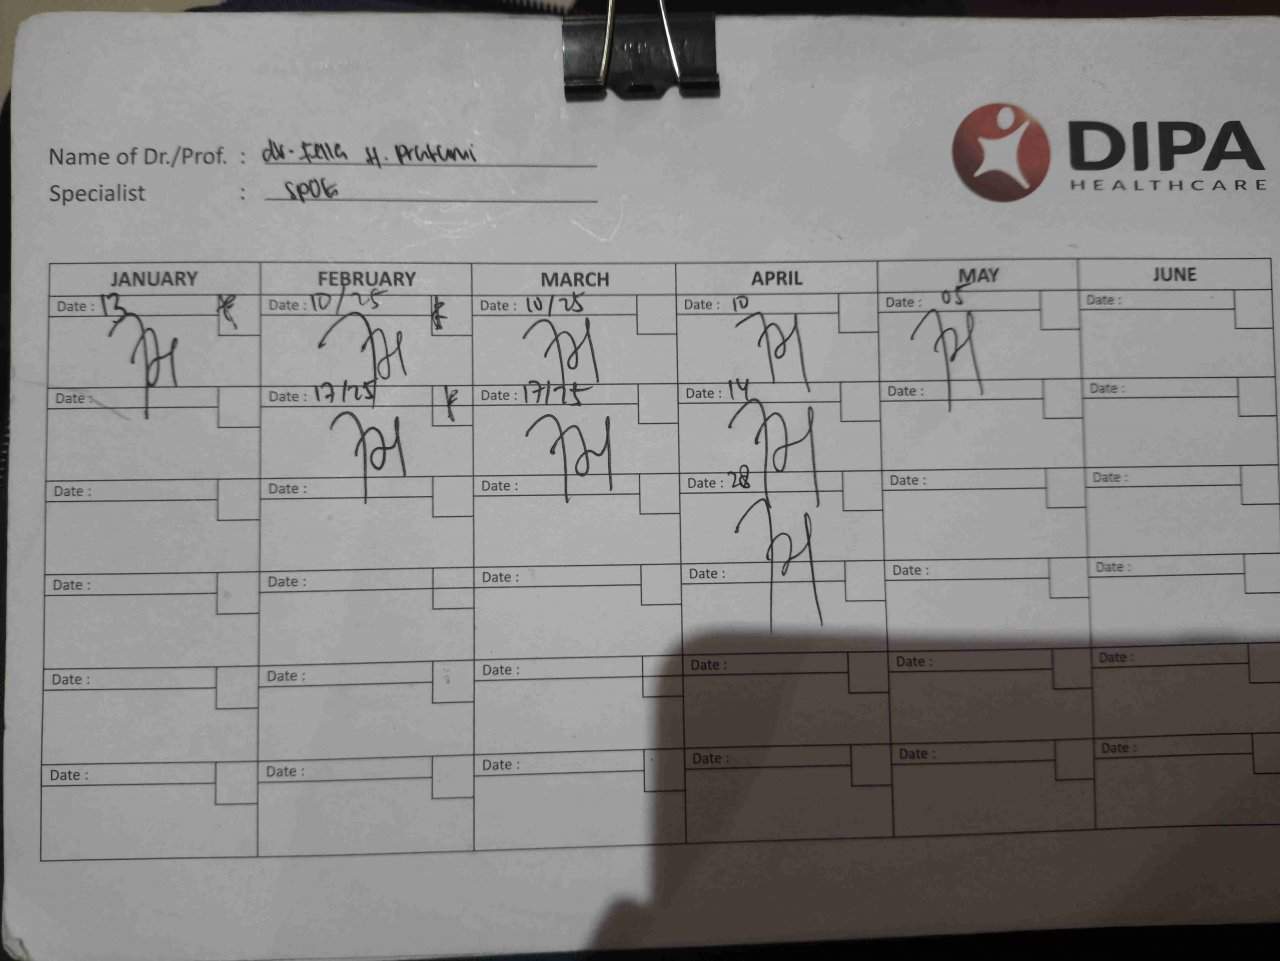 DIPA
HEALTHCARE
Name of Dr./Prof. : dr. Fella H. Pratami
Specialist : SPOG
JANUARY FEBRUARY MARCH APRIL MAY JUNE
Date : 13 Date : 10/25 Date : 10/25 Date : 10 Date : 05 Date :
Date : Date : 17/25 Date : 17/25 Date : 14 Date : Date :
Date : Date : Date : Date : 28 Date : Date :
Date : Date : Date : Date : Date : Date :
Date : Date : Date : Date : Date : Date :
Date : Date : Date : Date : Date : Date :